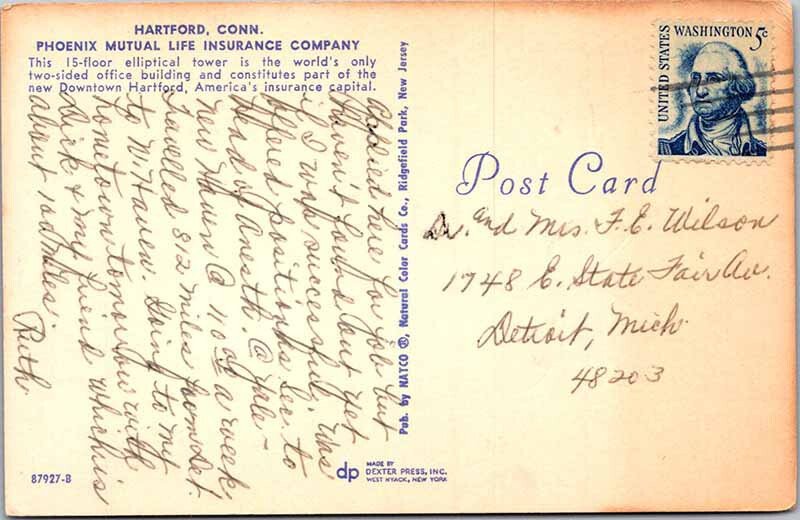 HARTFORD, CONN.
PHOENIX MUTUAL LIFE INSURANCE COMPANY
This 15-floor elliptical tower is the world's only
two-sided office building and constitutes part of the
new Downtown Hartford, America's insurance capital.
Applied here for job but
haven't found out yet
if I was successful. Was
offered position as Sec. to
Head of Anesth. @ Yale -
New Haven @ 110 00 a week
Travelled 812 miles from Det.
to N. Haven. Going to my
hometown tomorrow with
Dick & my friend which is
about 100 miles.
Ruth
Pub. by NATCO ®, Natural Color Cards Co., Ridgefield Park, New Jersey
87927-B
dp
MADE BY
DEXTER PRESS, INC.
WEST NYACK, NEW YORK
UNITED STATES
WASHINGTON 5c
Post Card
Dr. and Mrs. F. E. Wilson
1748 E. State Fair Av.
Detroit, Mich.
48203